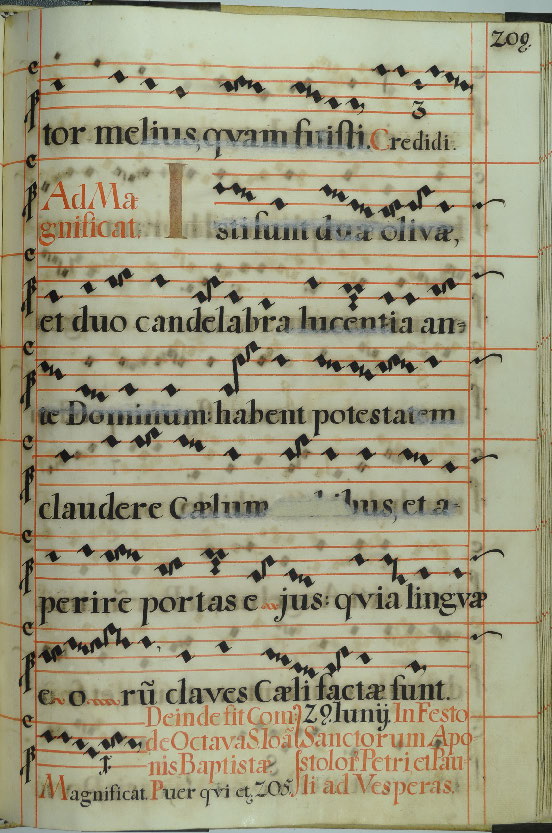 209.
tor melius, qvam fuisti. Credidi.
3
Ad Ma
gnificat.
Isti sunt duæ olivæ,
et duo candelabra lucentia an=
te Dominum: habent potestatem
claudere Cælum nubibus, et a-
perire portas ejus: qvia lingvæ
eorū claves Cæli factæ sunt.
Deinde fit Com̄
de Octava S Ioāīs
nis Baptistæ
Magnificat. Puer qvi et, 205.
29. Iunij. In Festo
Sanctorum Apo
stolor̄ Petri et Pau-
li ad Vesperas.